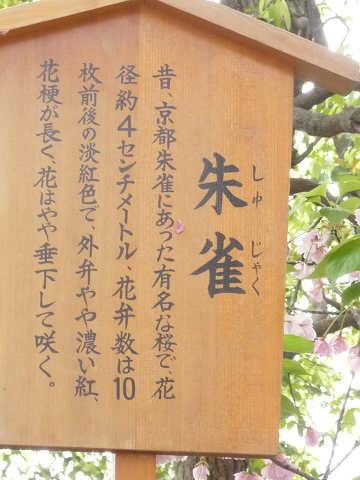 朱雀
しゅじゃく
昔、京都朱雀にあった有名な桜で、花
径約4センチメートル、花弁数は10
枚前後の淡紅色で、外弁やや濃い紅、
花梗が長く、花はやや垂下して咲く。